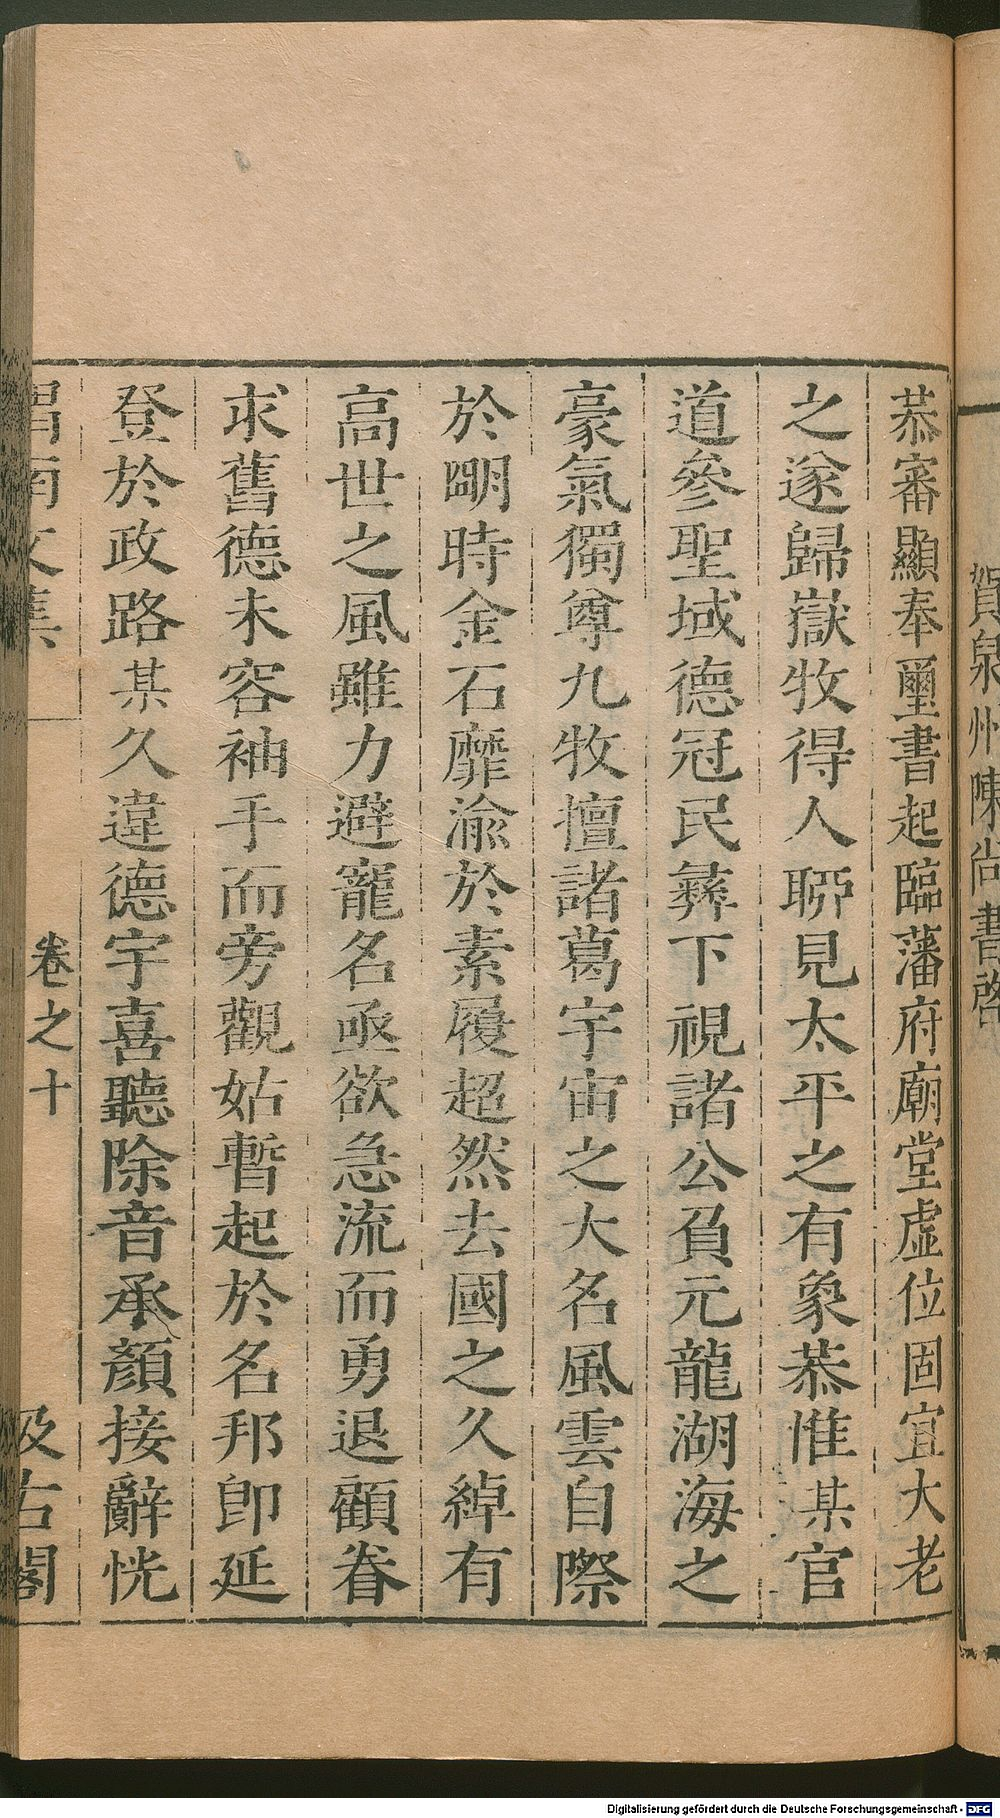 賀泉州陳尚書啓
恭審顯奉璽書起臨藩府廟堂虛位固宜大老
之遂歸嶽牧得人聊見太平之有象恭惟某官
道參聖域德冠民彝下視諸公負元龍湖海之
豪氣獨尊九牧擅諸葛宇宙之大名風雲自際
於朙時金石靡渝於素履超然去國之久綽有
高世之風雖力避寵名亟欲急流而勇退顧眷
求舊德未容袖手而旁觀姑暫起於名邦卽延
登於政路某久違德宇喜聽除音承顏接辭恍
渭南文集
卷之十
汲古閣
Digitalisierung gefördert durch die Deutsche Forschungsgemeinschaft - DFG